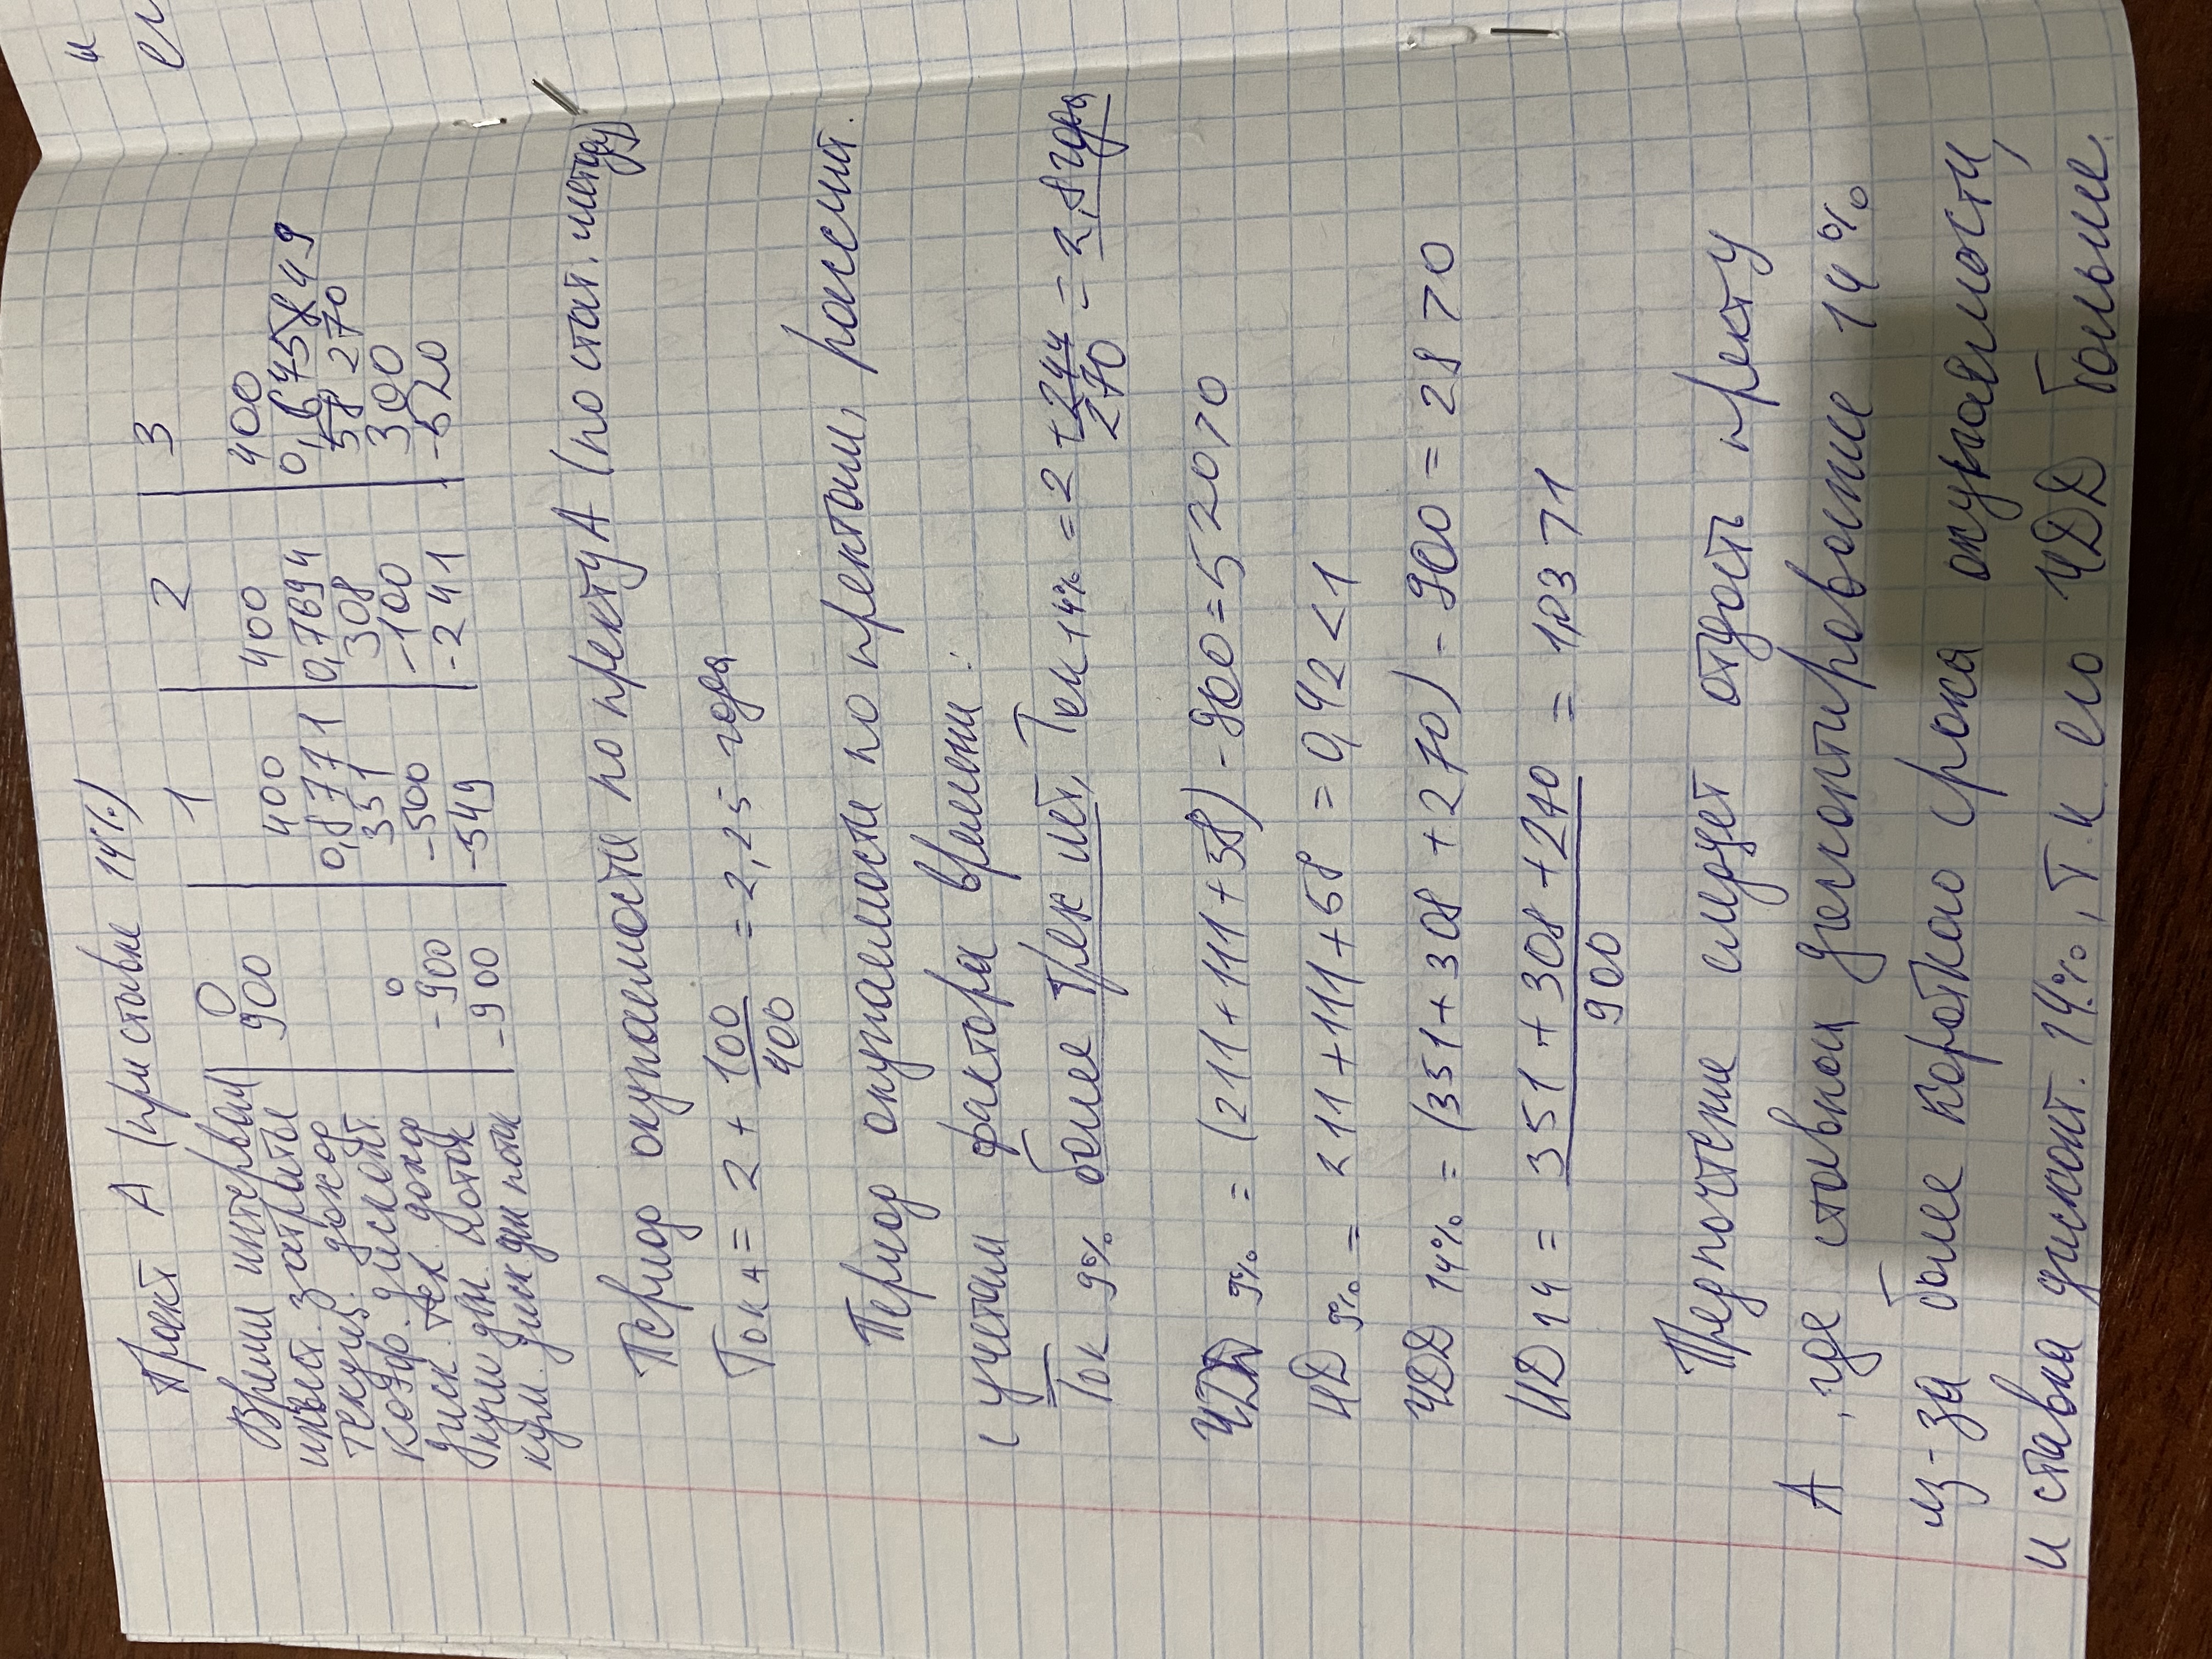 Проект А (при ставке 14%)
Время интервал 0 1 2 3
инвест. затраты 900
текущ. доход 400 400 400
коэф. дисконт. 0,8771 0,7694 0,675849
диск. тек. доход 0 351 308 58 270
кум ден. поток -900 -500 -100 300
кум. диск ден поток -900 -549 -241 -520
Период окупаемости по пректу А (по стат. методу)
Ток А = 2 + 100/400 = 2,25 года
Период окупаемости по пректам, рассчит.
с учетам фактора времени:
Ток 9% более трех лет, Ток 14% = 2 + 244/270 = 2,8 года
ЧДД 9% = (211+111+58) - 900 = 520 > 0
ИД 9% = 211+111+58 = 0,42 < 1
ЧДД 14% = (351+308+270) - 900 = 28 > 0
ИД 14 = 351+308+270/900 = 1,03 > 1
Предпочтение следует отдость пректу
А, где ставкой дисконтирование 14%
из-за более короткого срока окупаемости,
и ставка дисконт. 14%, т.к его ЧДД больше.
и